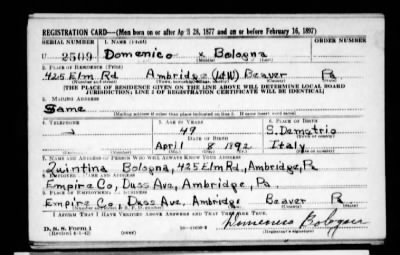 REGISTRATION CARD—(Men born on or after April 28, 1877 and on or before February 16, 1897)
SERIAL NUMBER 1. NAME (Print) ORDER NUMBER
U 2509 Domenico x Bologna
(First) (Middle) (Last)
2. PLACE OF RESIDENCE (Print)
425 Elm Rd Ambridge Beaver Pa
(Number and street) (Town, township, village, or city) (County) (State)
[THE PLACE OF RESIDENCE GIVEN ON THE LINE ABOVE WILL DETERMINE LOCAL BOARD
JURISDICTION; LINE 2 OF REGISTRATION CERTIFICATE WILL BE IDENTICAL]
3. MAILING ADDRESS
Same
[Mailing address if other than place indicated on line 2. If same insert word same]
4. TELEPHONE 5. AGE IN YEARS 6. PLACE OF BIRTH
49 S. Demetrio
DATE OF BIRTH
April 8 1892 Italy
7. NAME AND ADDRESS OF PERSON WHO WILL ALWAYS KNOW YOUR ADDRESS
Quintina Bologna, 425 Elm Rd., Ambridge, Pa
8. EMPLOYER'S NAME AND ADDRESS
Empire Co, Duss Ave, Ambridge, Pa.
9. PLACE OF EMPLOYMENT OR BUSINESS
Empire Co, Duss Ave, Ambridge Beaver Pa.
I AFFIRM THAT I HAVE VERIFIED ABOVE ANSWERS AND THAT THEY ARE TRUE.
D. S. S. Form 1
(Revised 4-1-42) (over)
Domenico Bologna
(Registrant's signature)